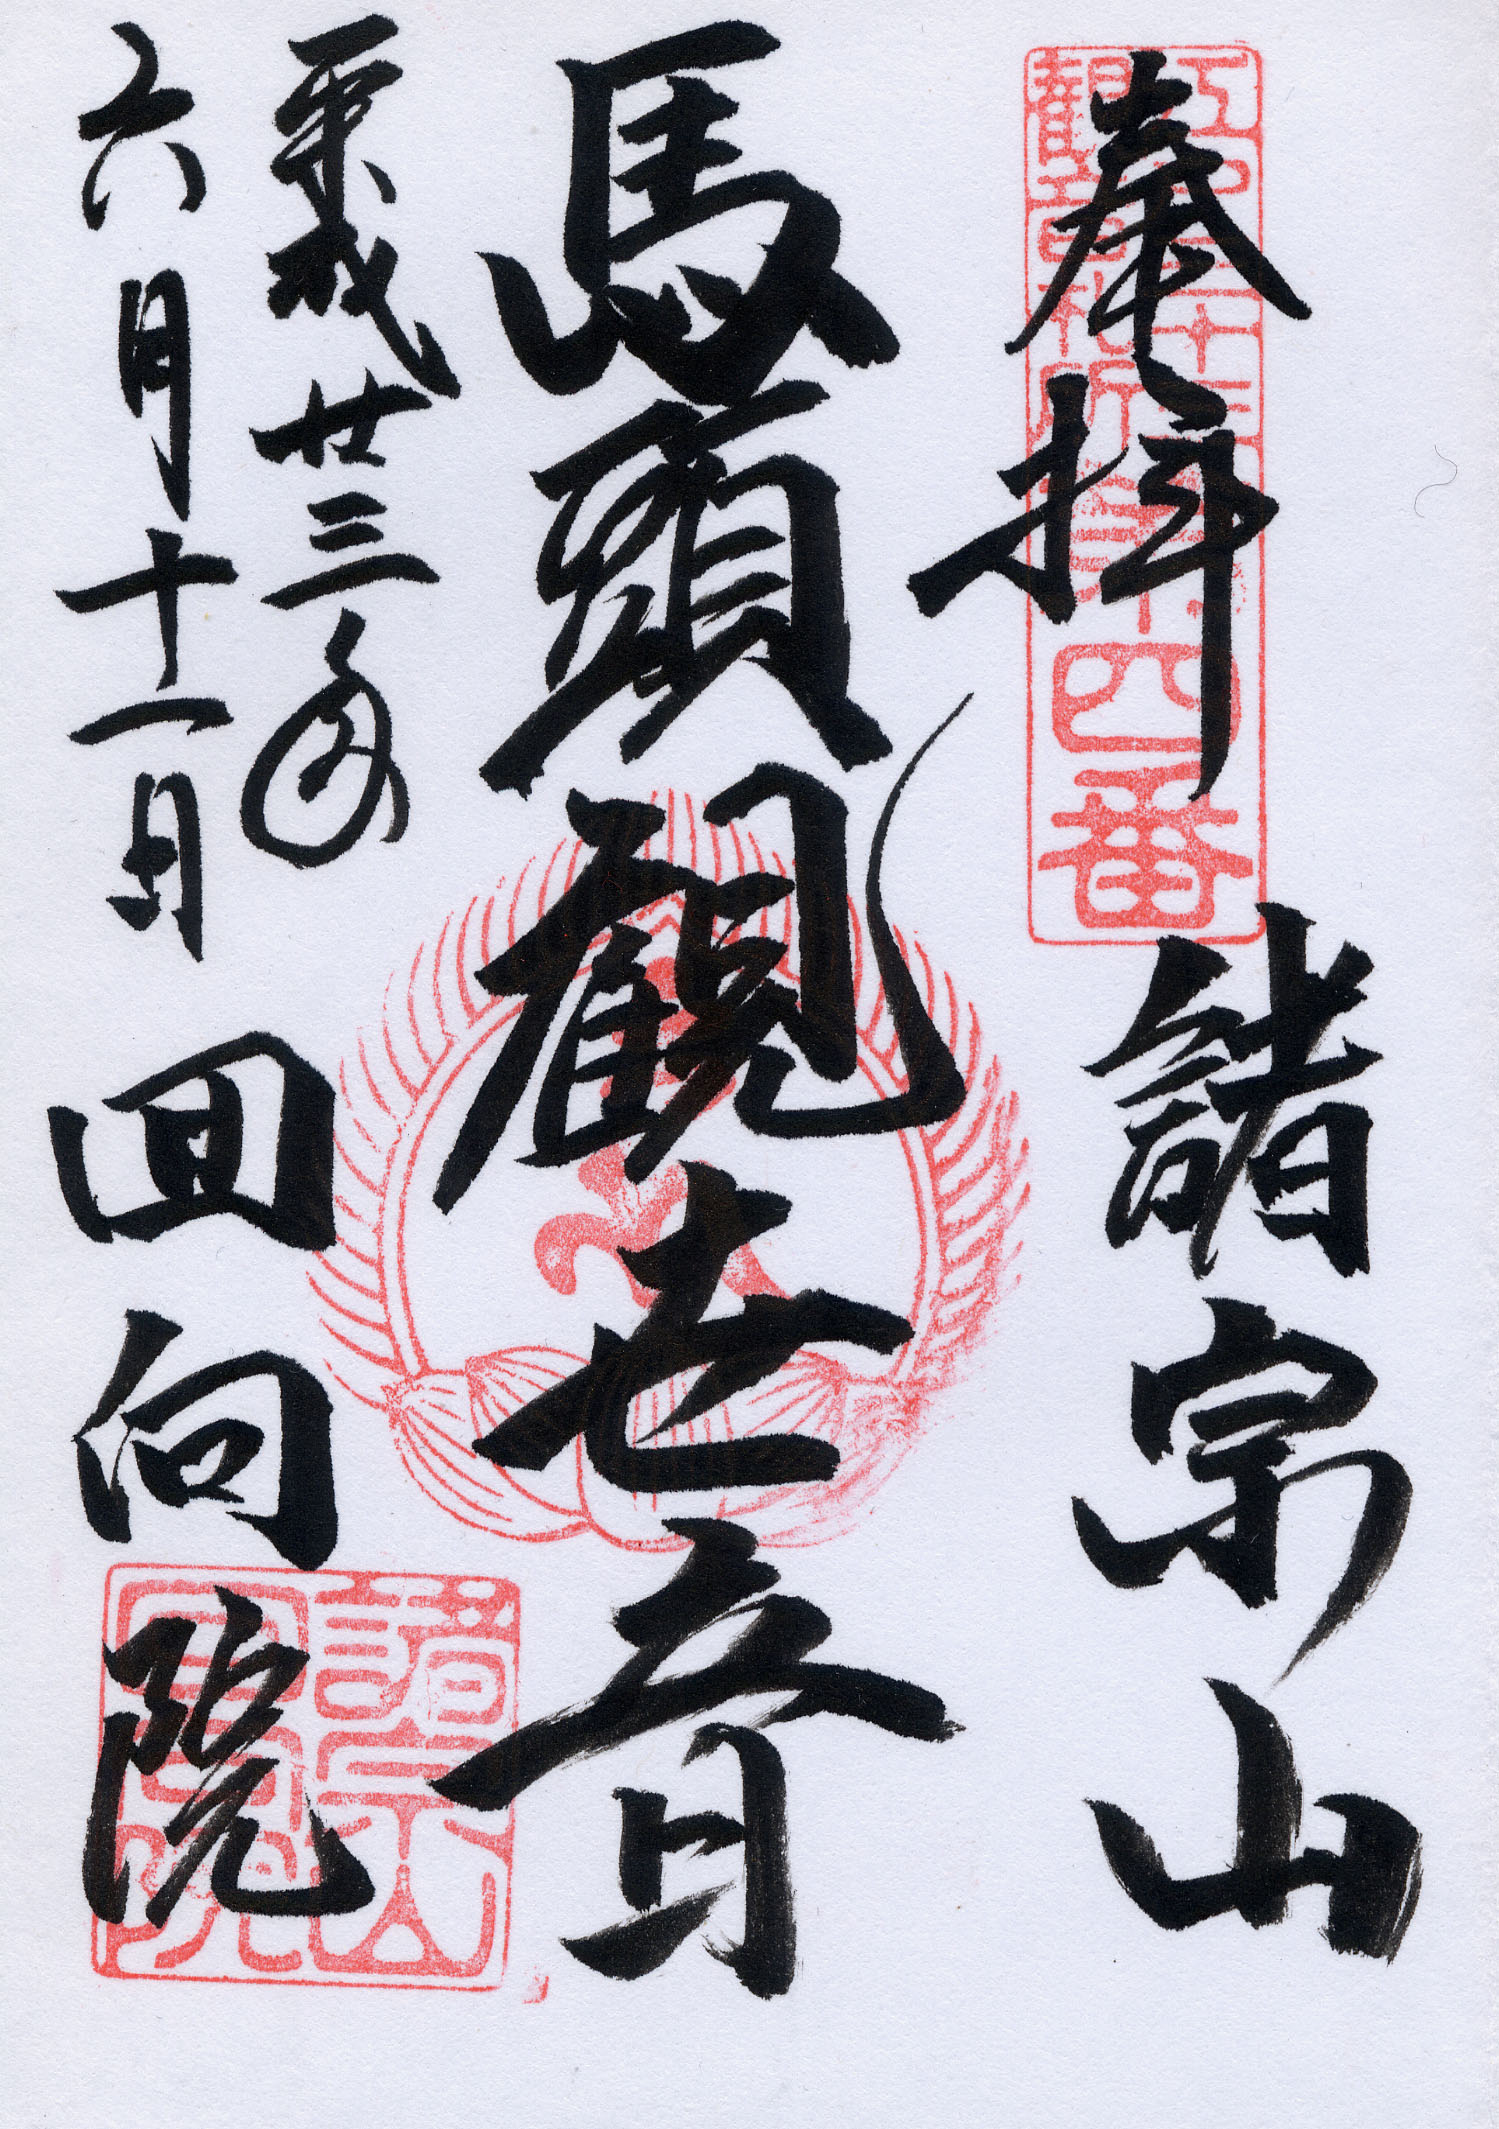 奉拝
諸宗山
江戸三十三
観音札所
第四番
馬頭観世音
平成廿三年
六月十一日
回向院
諸宗山
回向院